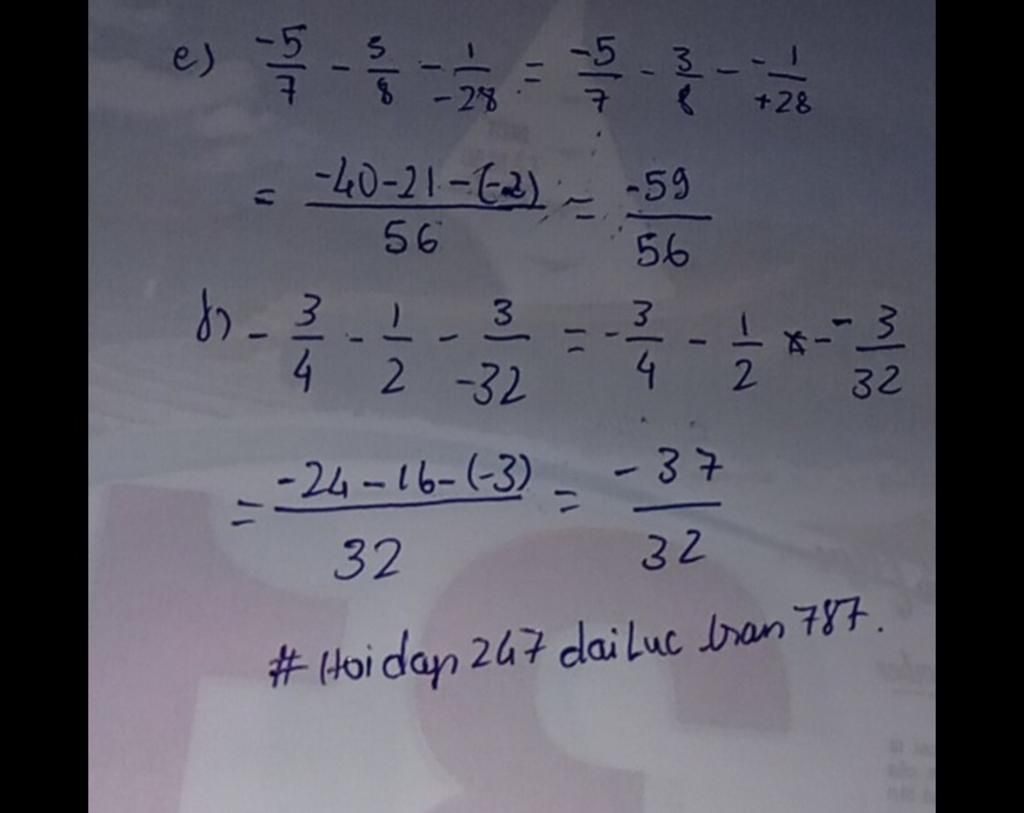 e) -5/7 - 3/8 - 1/-28 = -5/7 - 3/8 - -1/+28
= -40-21-(-2)/56 = -59/56
f) - 3/4 - 1/2 - 3/-32 = - 3/4 - 1/2 - - 3/32
= -24-16-(-3)/32 = -37/32
# Hoidap 247 dailuc tran 787.